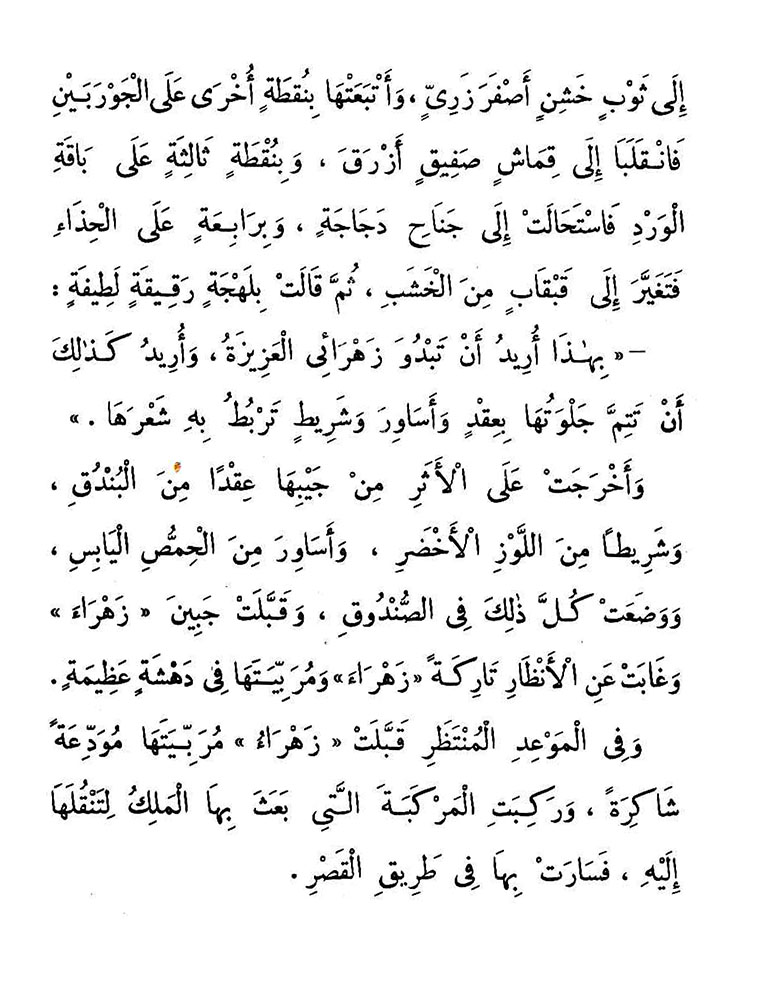 إِلَى ثَوْبٍ خَشِنٍ أَصْفَرَ زَرِيٍّ ، وَأَتْبَعَتْهَا بِنُقطَةٍ أُخْرَى عَلَى الْجَوْرَبَيْنِ
فَانْقَلَبَا إِلَى قِمَاشٍ صَفِيقٍ أَزْرَقَ ، وَبِنُقْطَةٍ ثَالِثَةٍ عَلَى بَاقَةِ
الْوَرْدِ فَاسْتَحَالَتْ إِلَى جَنَاحِ دَجَاجَةٍ ، وَبِرَابِعَةٍ عَلَى الْحِذَاءِ
فَتَغَيَّرَ إِلَى قَبْقَابٍ مِنَ الْخَشَبِ ، ثُمَّ قَالَتْ بِلَهْجَةٍ رَقِيقَةٍ لَطِيفَةٍ :
– « بِهٰذَا أُرِيدُ أَنْ تَبْدُوَ زَهْرَائِى الْعَزِيزَةُ ، وَأُرِيدُ كَذٰلِكَ
أَنْ تَتِمَّ جَلْوَتُهَا بِعِقْدٍ وَأَسَاوِرَ وَشَرِيطٍ تَرْبُطُ بِهِ شَعْرَهَا . »
وَأَخْرَجَتْ عَلَى الْأَثَرِ مِنْ جَيْبِهَا عِقْدًا مِنَ الْبُنْدُقِ ،
وَشَرِيطًا مِنَ اللَّوْزِ الْأَخْضَرِ ، وَأَسَاوِرَ مِنَ الْحِمُّصِ الْيَابِسِ ،
وَوَضَعَتْ كُلَّ ذٰلِكَ فِى الصُّنْدُوقِ ، وَقَبَّلَتْ جَبِينَ « زَهْرَاءَ »
وَغَابَتْ عَنِ الْأَنْظَارِ تَارِكَةً « زَهْرَاءَ » وَمُرَبِّيَتَهَا فِى دَهْشَةٍ عَظِيمَةٍ .
وَفِى الْمَوْعِدِ الْمُنْتَظَرِ قَبَّلَتْ « زَهْرَاءُ » مُرَبِّيَتَهَا مُوَدِّعَةً
شَاكِرَةً ، وَرَكِبَتِ الْمَرْكَبَةَ الَّتِي بَعَثَ بِهَا الْمَلِكُ لِتَنْقُلَهَا
إِلَيْهِ ، فَسَارَتْ بِهَا فِى طَرِيقِ الْقَصْرِ .